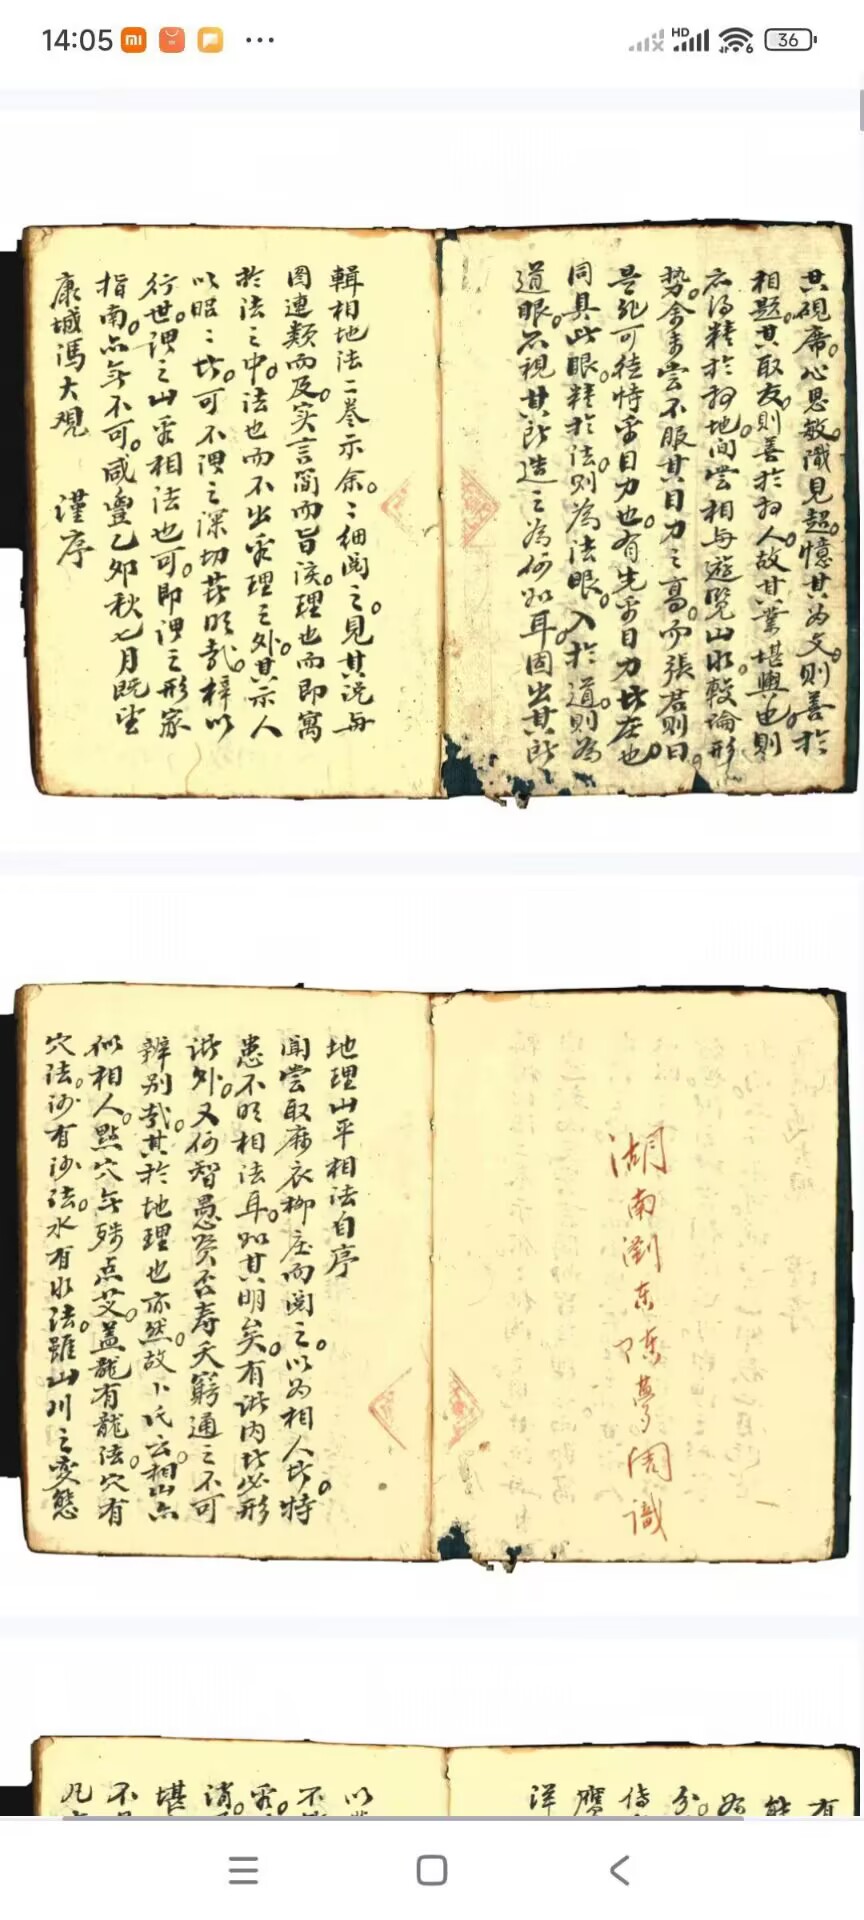 14:05
HD
6
36
共硯席。心思敏。識見超。憶其為文。則善於
相題。其取友。則善於相人。故其業堪輿也。則
尤得精於相地。間嘗相與遊覽山水。較論形
勢。余未嘗不服其目力之高。而張君則曰。
是非可徒恃乎目力也。有先乎目力者在也。
同具此眼。精於法。則為法眼。入於道。則為
道眼。不視其所造之為何如耳。固出其所
輯相地法二卷示余。余細閱之。見其說每
圖連類而及。实言簡而旨深。理也而即寓
於法之中。法也而不出乎理之外。其示人
以眼者。可不謂之深切著明哉。梓以
行世。謂之山平相法也可。即謂之形家
指南亦無不可。咸豐乙卯秋七月既望
康城馮大觀 謹序
湖南劉東 夢周識
地理山平相法自序
聞嘗取麻衣柳庄而閱之。以为相人者。特
患不明相法耳。如其明矣。有諸内者必形
諸外。又何智愚賢否壽夭窮通之不可
辨别哉。其於地理也亦然。故卜氏云。相山亦
似相人。點穴無殊点艾。蓋龍有龍法。穴有
穴法。沙有沙法。水有水法。雖山川之變態
有
洋
以
不
堪
不
凡